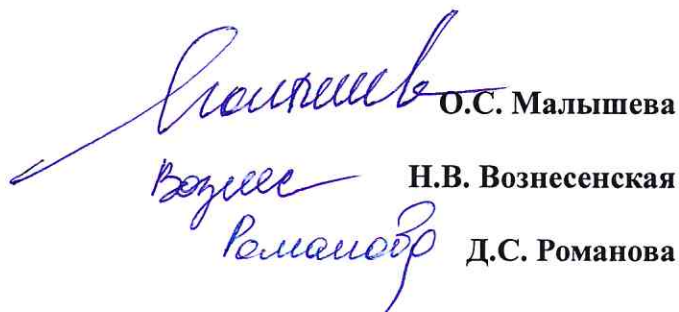 Малышева О.С. Малышева
Вознес Н.В. Вознесенская
Романова Д.С. Романова